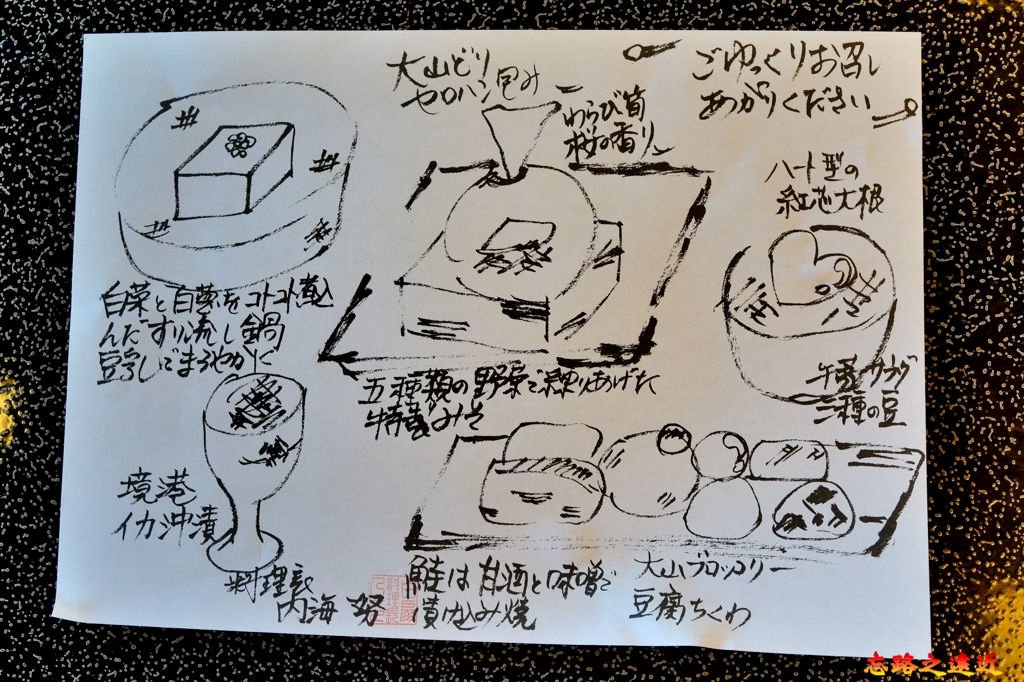 大山どり
セロハン包み
わらび筍
桜の香り
ごゆっくりお召し
あがりください
ハート型の
紅芯大根
白菜と白葱をコトコト煮込
んだすり流し鍋
豆乳でまろやかに
五種類の野菜で練りあげた
特製みそ
サラダ
三種の豆
境港
イカ沖漬
料理長
内海 努
鮭は甘酒と味噌で
漬け込み焼
大山ブロッコリー
豆腐ちくわ
忘路之遠近